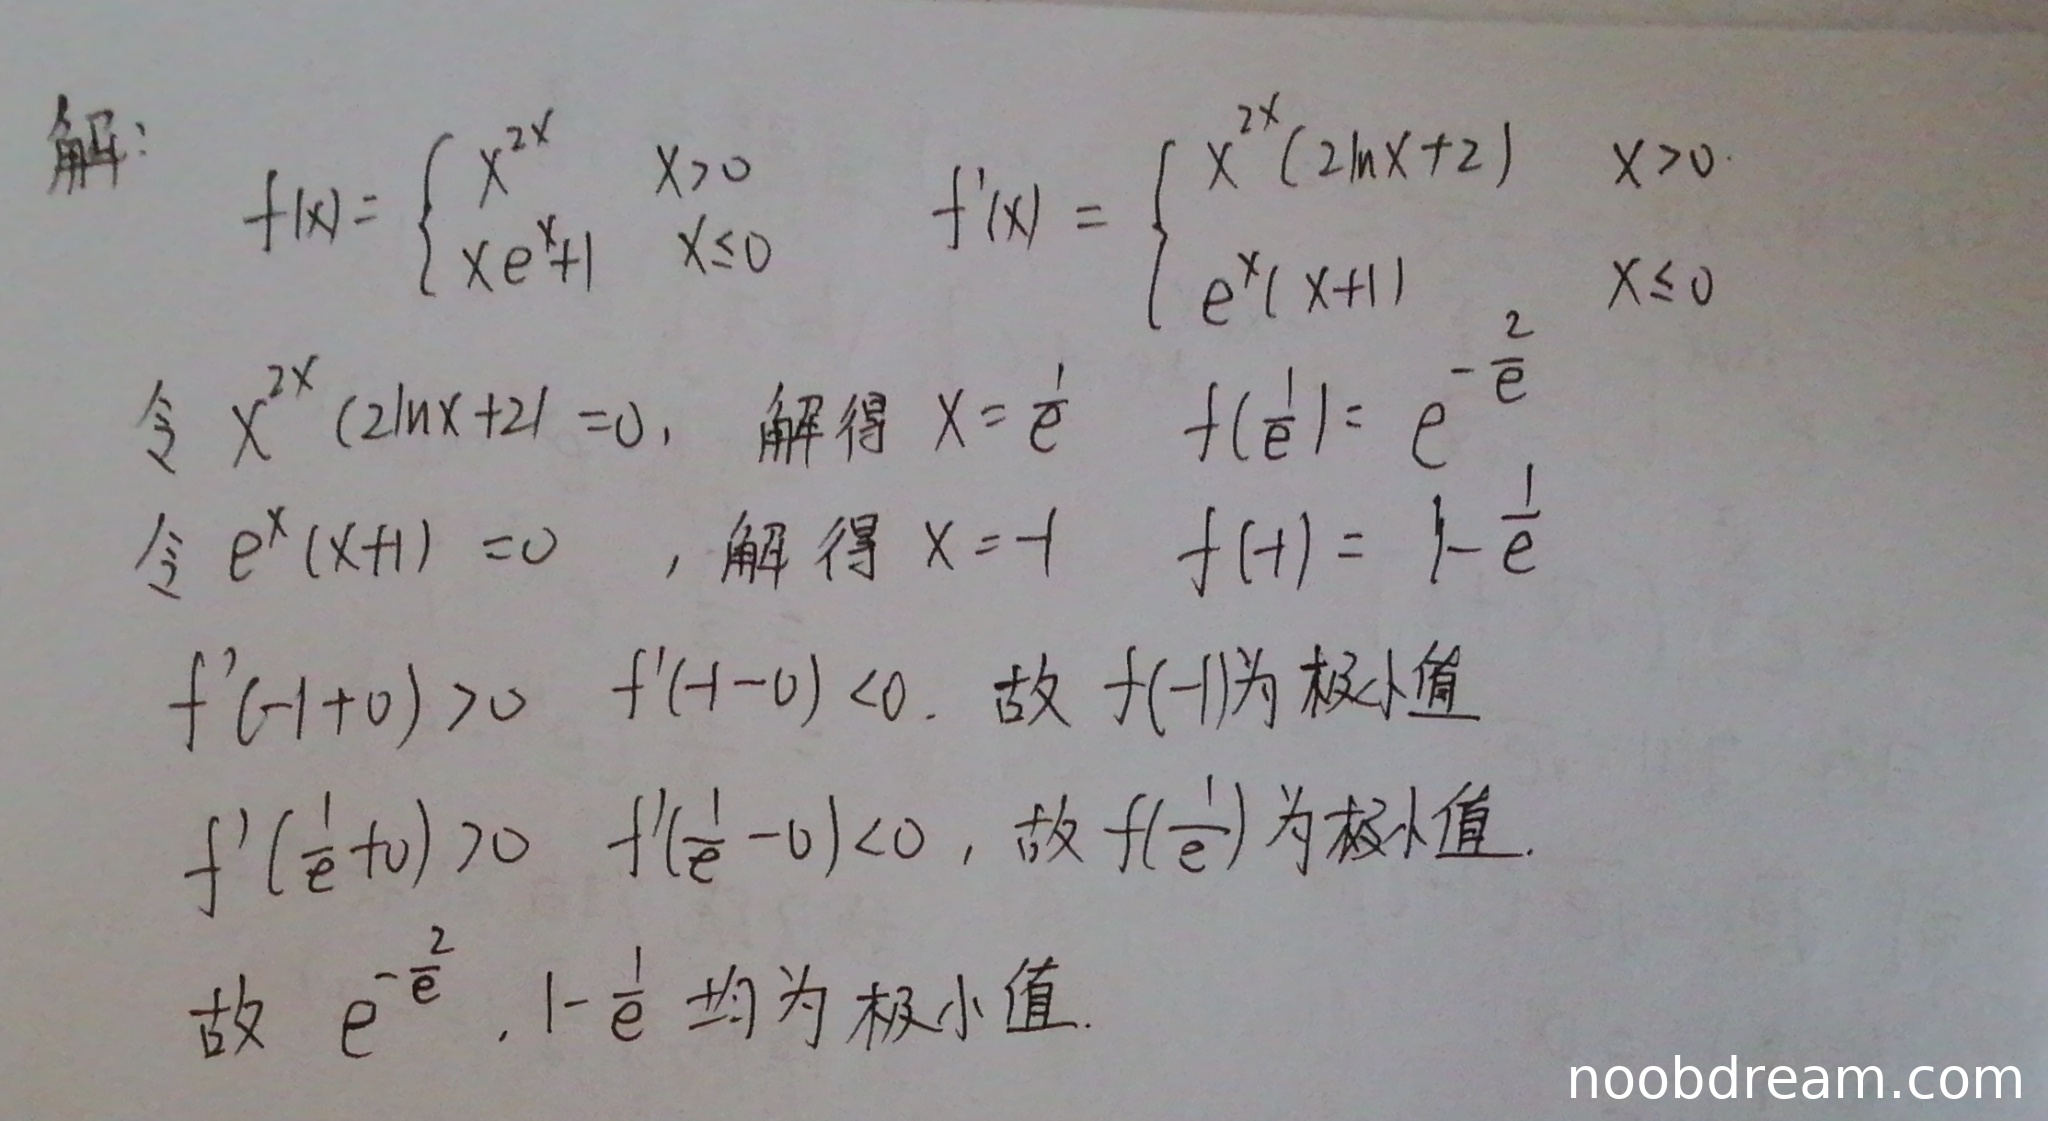 解: f(x) = { x^{2x} x>0 ; xe^x+1 x≤0 f'(x) = { x^{2x}(2lnx+2) x>0. ; e^x(x+1) x≤0
令 x^{2x}(2lnx+2)=0, 解得 x=1/e f(1/e)= e^{-2/e}
令 e^x(x+1) =0 , 解得 x=-1 f(-1) = 1-1/e
f'(-1+0)>0 f'(-1-0)<0. 故 f(-1)为极小值
f'(1/e+0)>0 f'(1/e-0)<0, 故 f(1/e)为极小值.
故 e^{-2/e}, 1-1/e 均为极小值.
noobdream.com